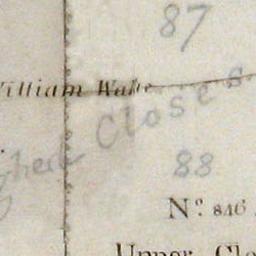 87
William Wake
Closes
88
No. 846
Upper Clo